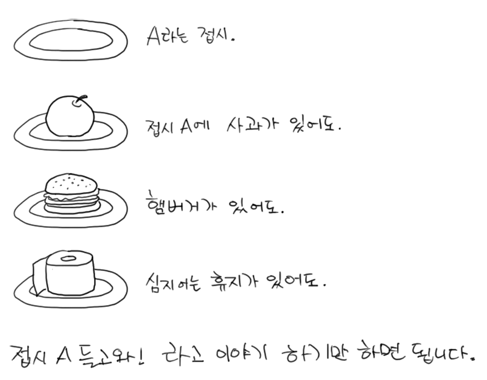 A라는 접시.
접시 A에 사과가 있어도.
햄버거가 있어도.
심지어는 휴지가 있어도.
접시 A 들고와! 라고 이야기 하기만 하면 됩니다.